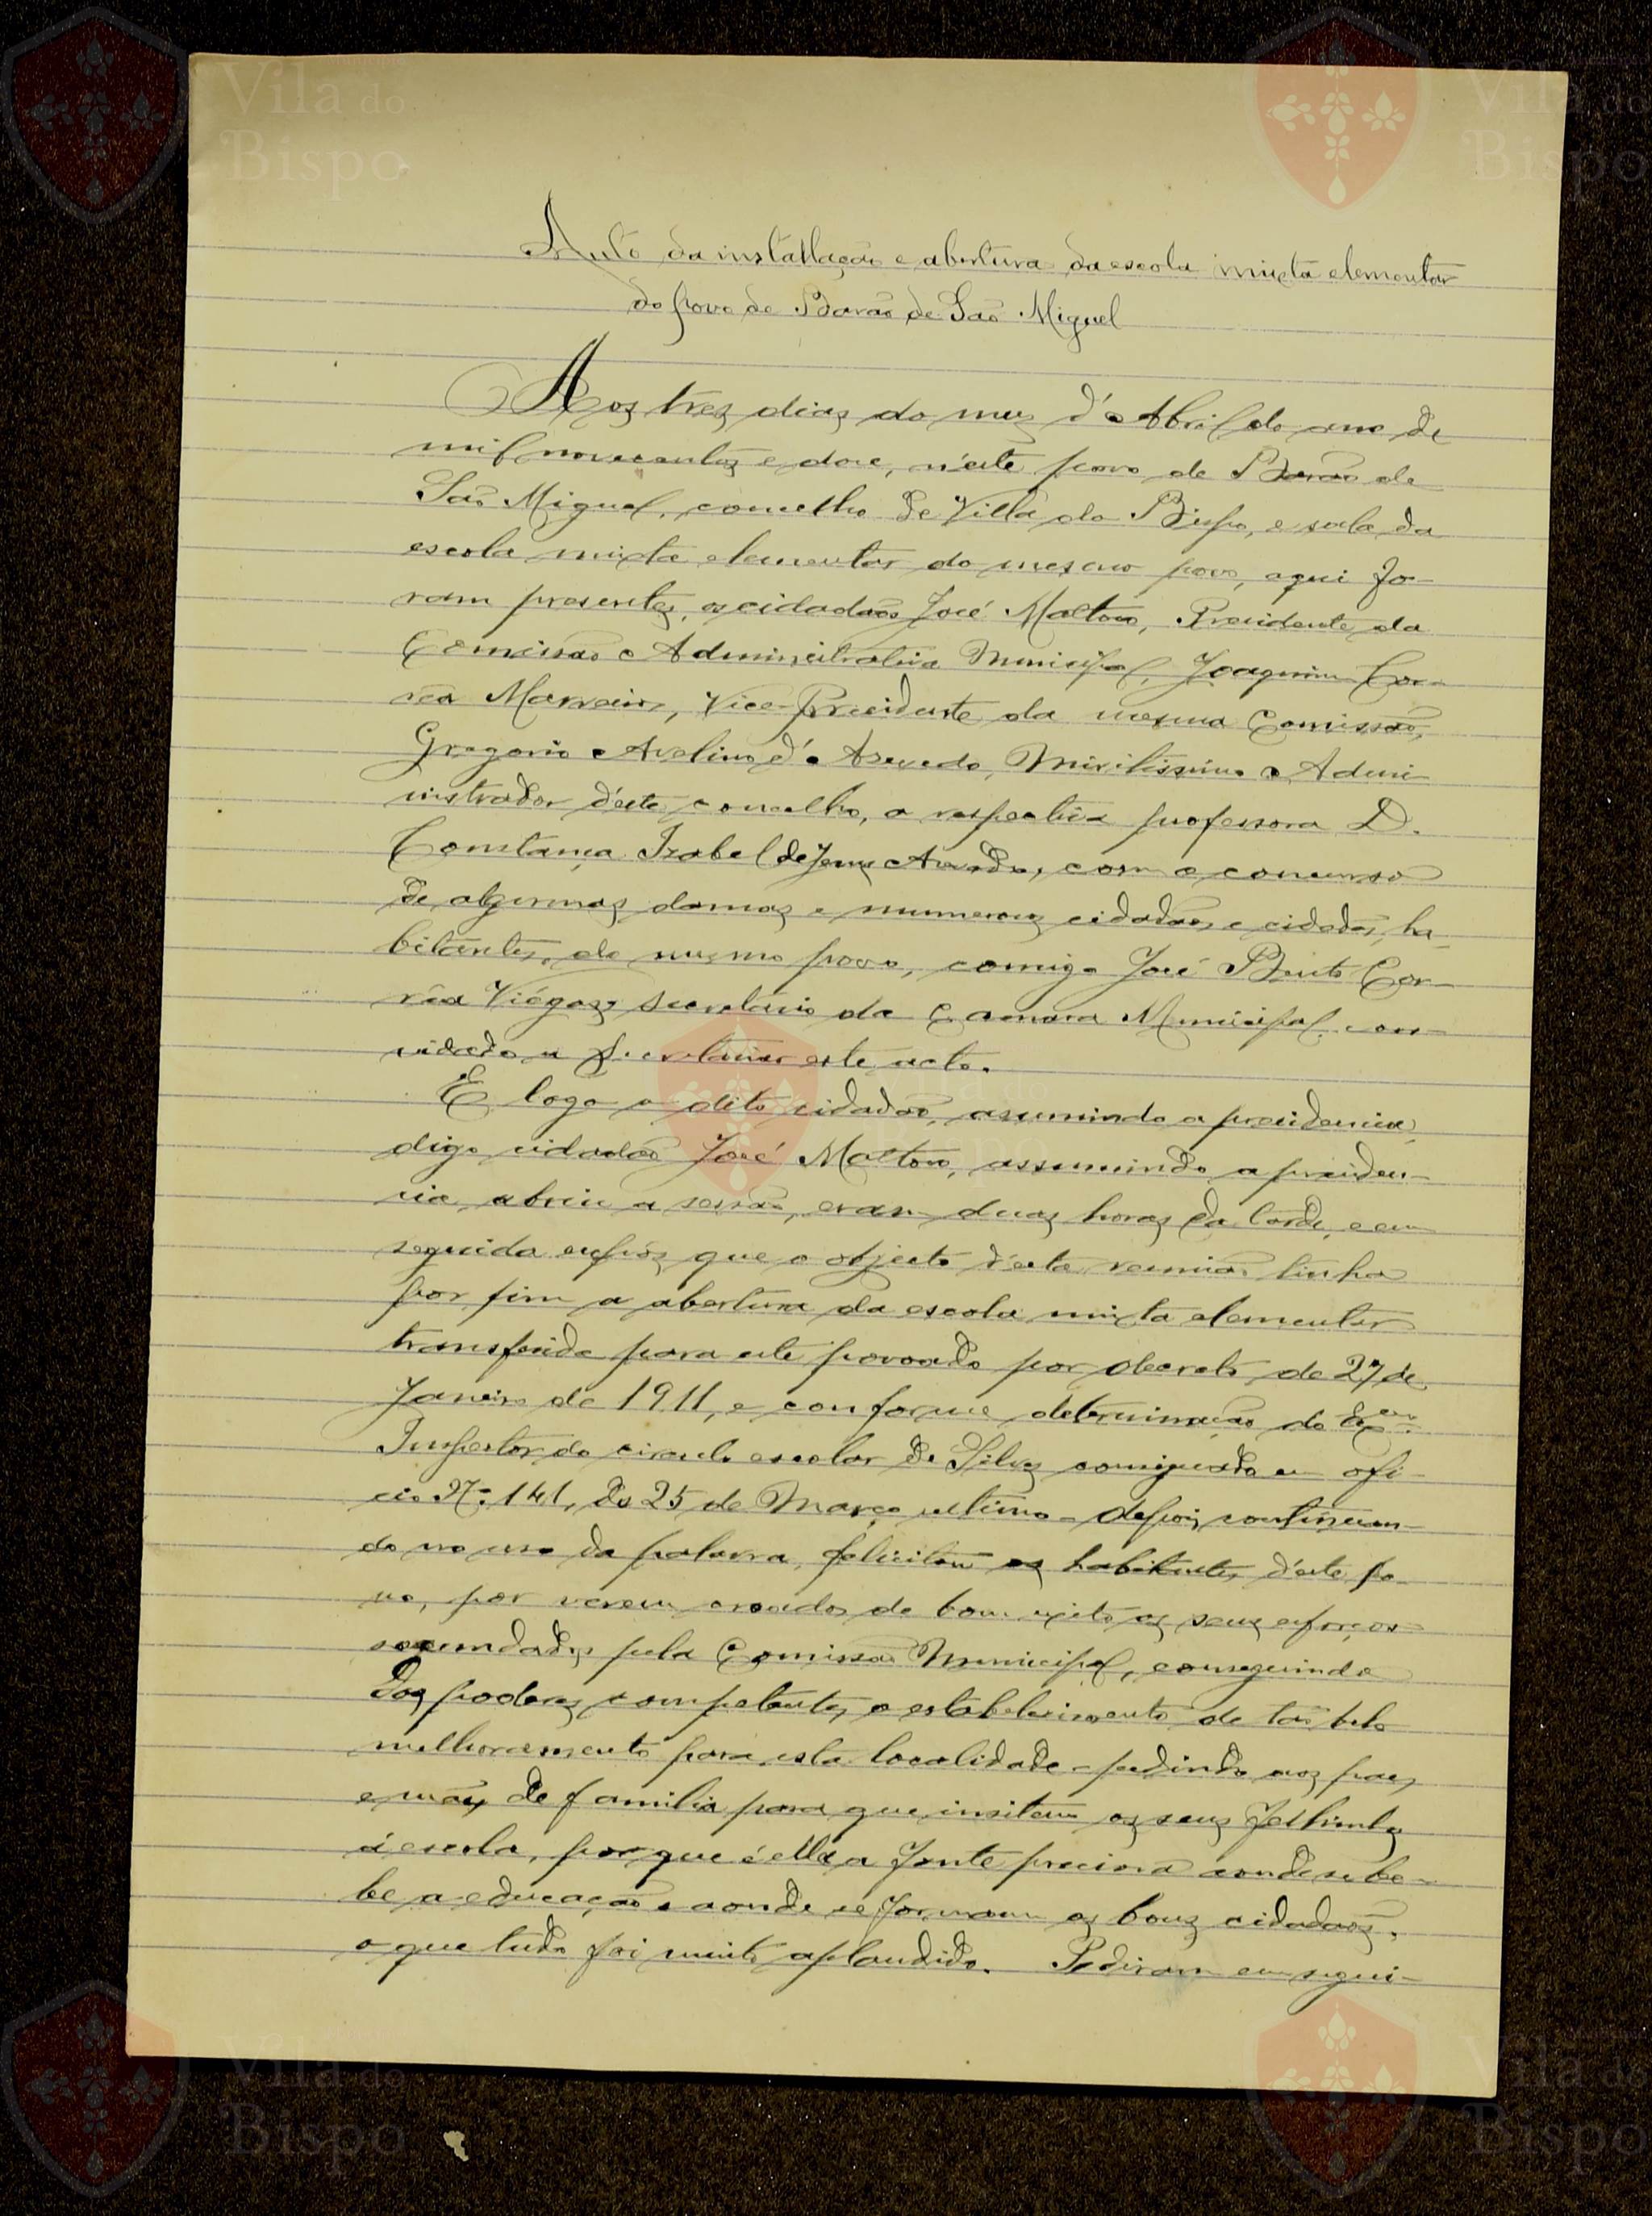 Auto da installação e abertura da escola mixta elementar
do povo de Barão de São Miguel
Aos tres dias do mez d'Abril do ano de
mil novecentos e doze, n'este povo de Barão de
São Miguel, concelho de Villa do Bispo, e sala da
escola mixta elementar do mesmo povo, aqui fo-
ram presentes, os cidadãos José Mattoso, Presidente da
Comissão Administrativa Municipal, Joaquim Cor-
rêa Marreiros, Vice-Presidente da mesma Comissão,
Gregorio Avelino d'Azevedo, Meritissimo Admi-
nistrador d'este concelho, a respectiva professora D.
Constança Izabel de Jesus Azevedo, com o concurso
de algumas damas e numerosos cidadãos e cidadãs, ha-
bitantes, do mesmo povo, comigo José Bento Cor-
rêa Viégas, secretário da Camara Municipal, con-
vidado a secretariar este acto.
E logo o dito cidadão, assumindo a presidencia,
digo cidadão José Mattoso, assumindo a presiden-
cia, abriu a sessão, eram duas horas da tarde, e em
seguida expôz que o objecto d'esta reunião tinha
por fim a abertura da escola mixta elementar
transferida para este povoado por decreto de 27 de
Janeiro de 1911, e conforme determinação do Exmo.
Inspector do circulo escolar de Silves consignada em ofi-
cio Nº. 141, de 25 de Março ultimo - depois continuan-
do no uso da palavra, felicitou os habitantes, d'este po-
vo, por verem coroados de bom exito os seus esforços
secundados pela Comissão Municipal, conseguindo
dos poderes competentes o estabelecimento de tão belo
melhoramento para esta localidade - pedindo aos paes,
e mães de familia para que insitem os seus filhinhos
á escola, por que é ella a fonte preciosa aonde se be-
be a educação e aonde se formam os bons cidadãos,
o que tudo foi muito aplaudido. Pediram em segui-
Vila do
Bispo
Vila do
Bispo
Vila do
Bispo
Vila do
Bispo